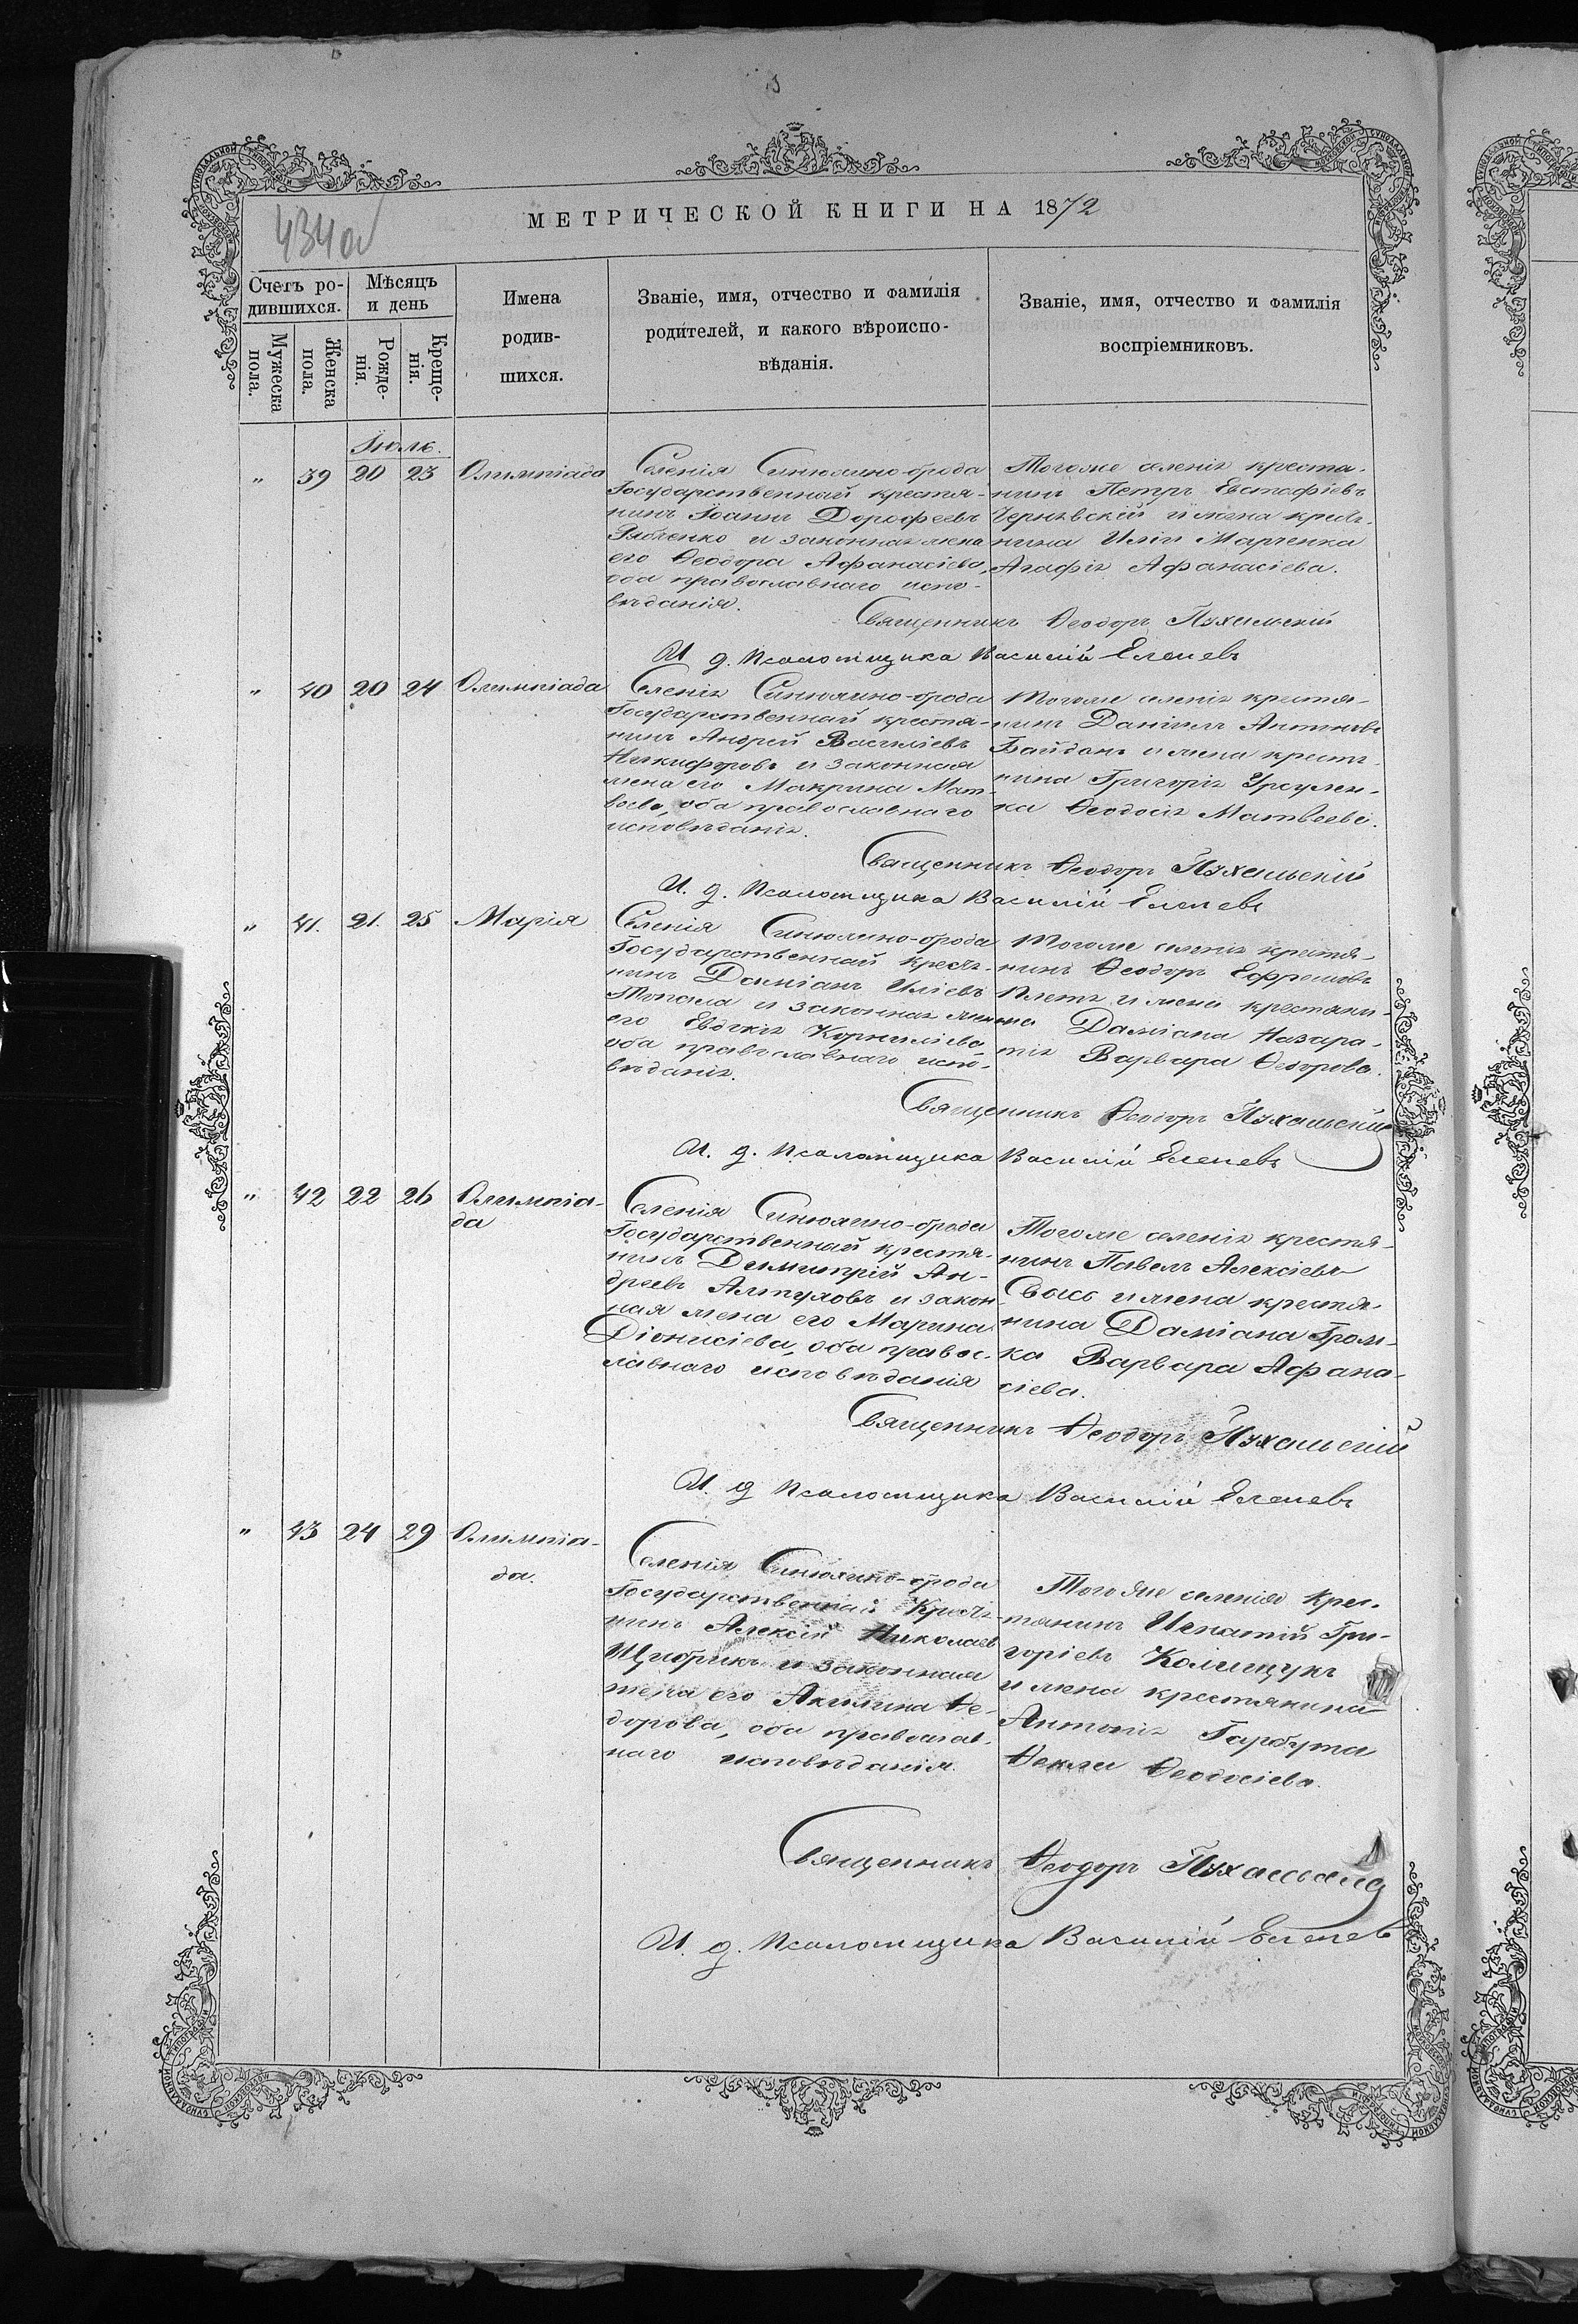 434 об
МЕТРИЧЕСКОЙ КНИГИ НА 1872
Счетъ ро-
дившихся.
Мѣсяцъ
и день
Имена
родив-
шихся.
Званіе, имя, отчество и фамилія
родителей, и какого вѣроиспо-
вѣданія.
Званіе, имя, отчество и фамилія
воспріемниковъ.
Мужеска
пола.
Женска
пола.
Рожде-
нія.
Креще-
нія.
Іюль.
" 39 20 23 Олимпіада
Селенія Синюхино-брода
Государственный крестья-
нинъ Іоаннъ Дорофеевъ
и законная жена
его Ѳеодора Афанасіева,
оба православнаго испо-
вѣданія.
Тогоже селенія крестья-
нинъ Петръ Евстафіевъ
Чернявскій и жена крест.
нина Иліи Марченка
Агафія Афанасіева.
Священникъ Ѳеодоръ
И. д. Псаломщика Василій Еленевъ
" 40 20 24 Олимпіада
Селенія Синюхино-брода
Государственный крестья-
нинъ Андрей Василіевъ
Никифоровъ и законная
жена его Макрина Мат-
ѳеева, оба православнаго
исповѣданія.
Тогоже селенія крестья-
нинъ Даніилъ Антиновъ
Байданъ и жена крестья-
нина Григорія Урсулен-
ка Ѳеодосія Матвеева.
Священникъ Ѳеодоръ
И. д. Псаломщика Василій Еленевъ
" 41. 21. 25 Марія
Селенія Синюхино-брода
Государственный кресть-
нинъ Даміанъ Иліевъ
Топала и законная жена
его Евдокія Корниліева
оба православнаго испо-
вѣданія.
Тогоже селенія крестья-
нинъ Ѳеодоръ Ефремовъ
и жена крестьяни-
на Даміана Назара-
тія Варвара Ѳедорова.
Священникъ Ѳеодоръ
И. д. Псаломщика Василій Еленевъ
" 42 22 26 Олимпіа-
да
Селенія Синюхино-брода
Государственный крестья-
нинъ Димитрій Ан-
дреевъ Алтуховъ и закон-
ная жена его Марина
Діонисіева, оба правос-
лавнаго исповѣданія
Тогоже селенія крестья-
нинъ Павелъ Алексіевъ
и жена крестья-
нина Даміана Гром-
ка Варвара Афана-
сіева.
Священникъ Ѳеодоръ
И. д. Псаломщика Василій Еленевъ
" 43 24 29 Олимпіа-
да.
Селенія Синюхино-брода
Государственный Кресть-
нинъ Алексій Николаев
и законная
жена его Акилина Ѳе-
дорова, оба православ-
наго исповѣданія.
Того же селенія Крес-
тянинъ Игнатій Гри-
горіевъ Колищукъ
и жена крестьянина
Антонія Гарбуза
Ѳекла Ѳеодосіева.
Священникъ Ѳеодоръ
И. д. Псаломщика Василій Еленев